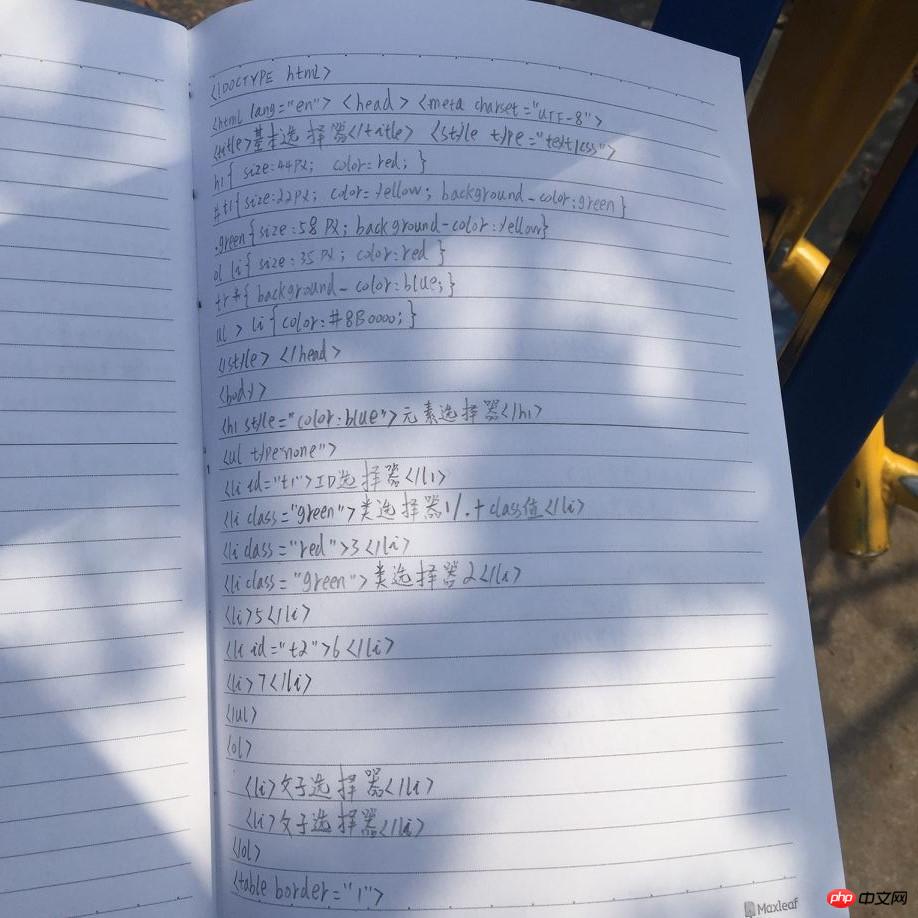 <!DOCTYPE html>
<html lang="en"> <head> <meta charset="UTF-8">
<title>基本选择器</title> <style type="text/css">
h1{ size:44px; color:red; }
#t1{size:22px; color:yellow; background-color:green}
.green{size:58px; background-color:yellow}
ol li{ size:35px; color:red }
tr *{ background-color:blue;}
ul > li {color:#8B0000;}
</style> </head>
<body>
<h1 style="color:blue">元素选择器</h1>
<ul type="none">
<li id="t1">ID选择器</li>
<li class="green">类选择器1/.+class值</li>
<li class="red">3</li>
<li class="green">类选择器2</li>
<li>5</li>
<li id="t2">6</li>
<li>7</li>
</ul>
<ol>
<li>父子选择器</li>
<li>父子选择器</li>
</ol>
<table border="1">
Maxleaf
php 中文网